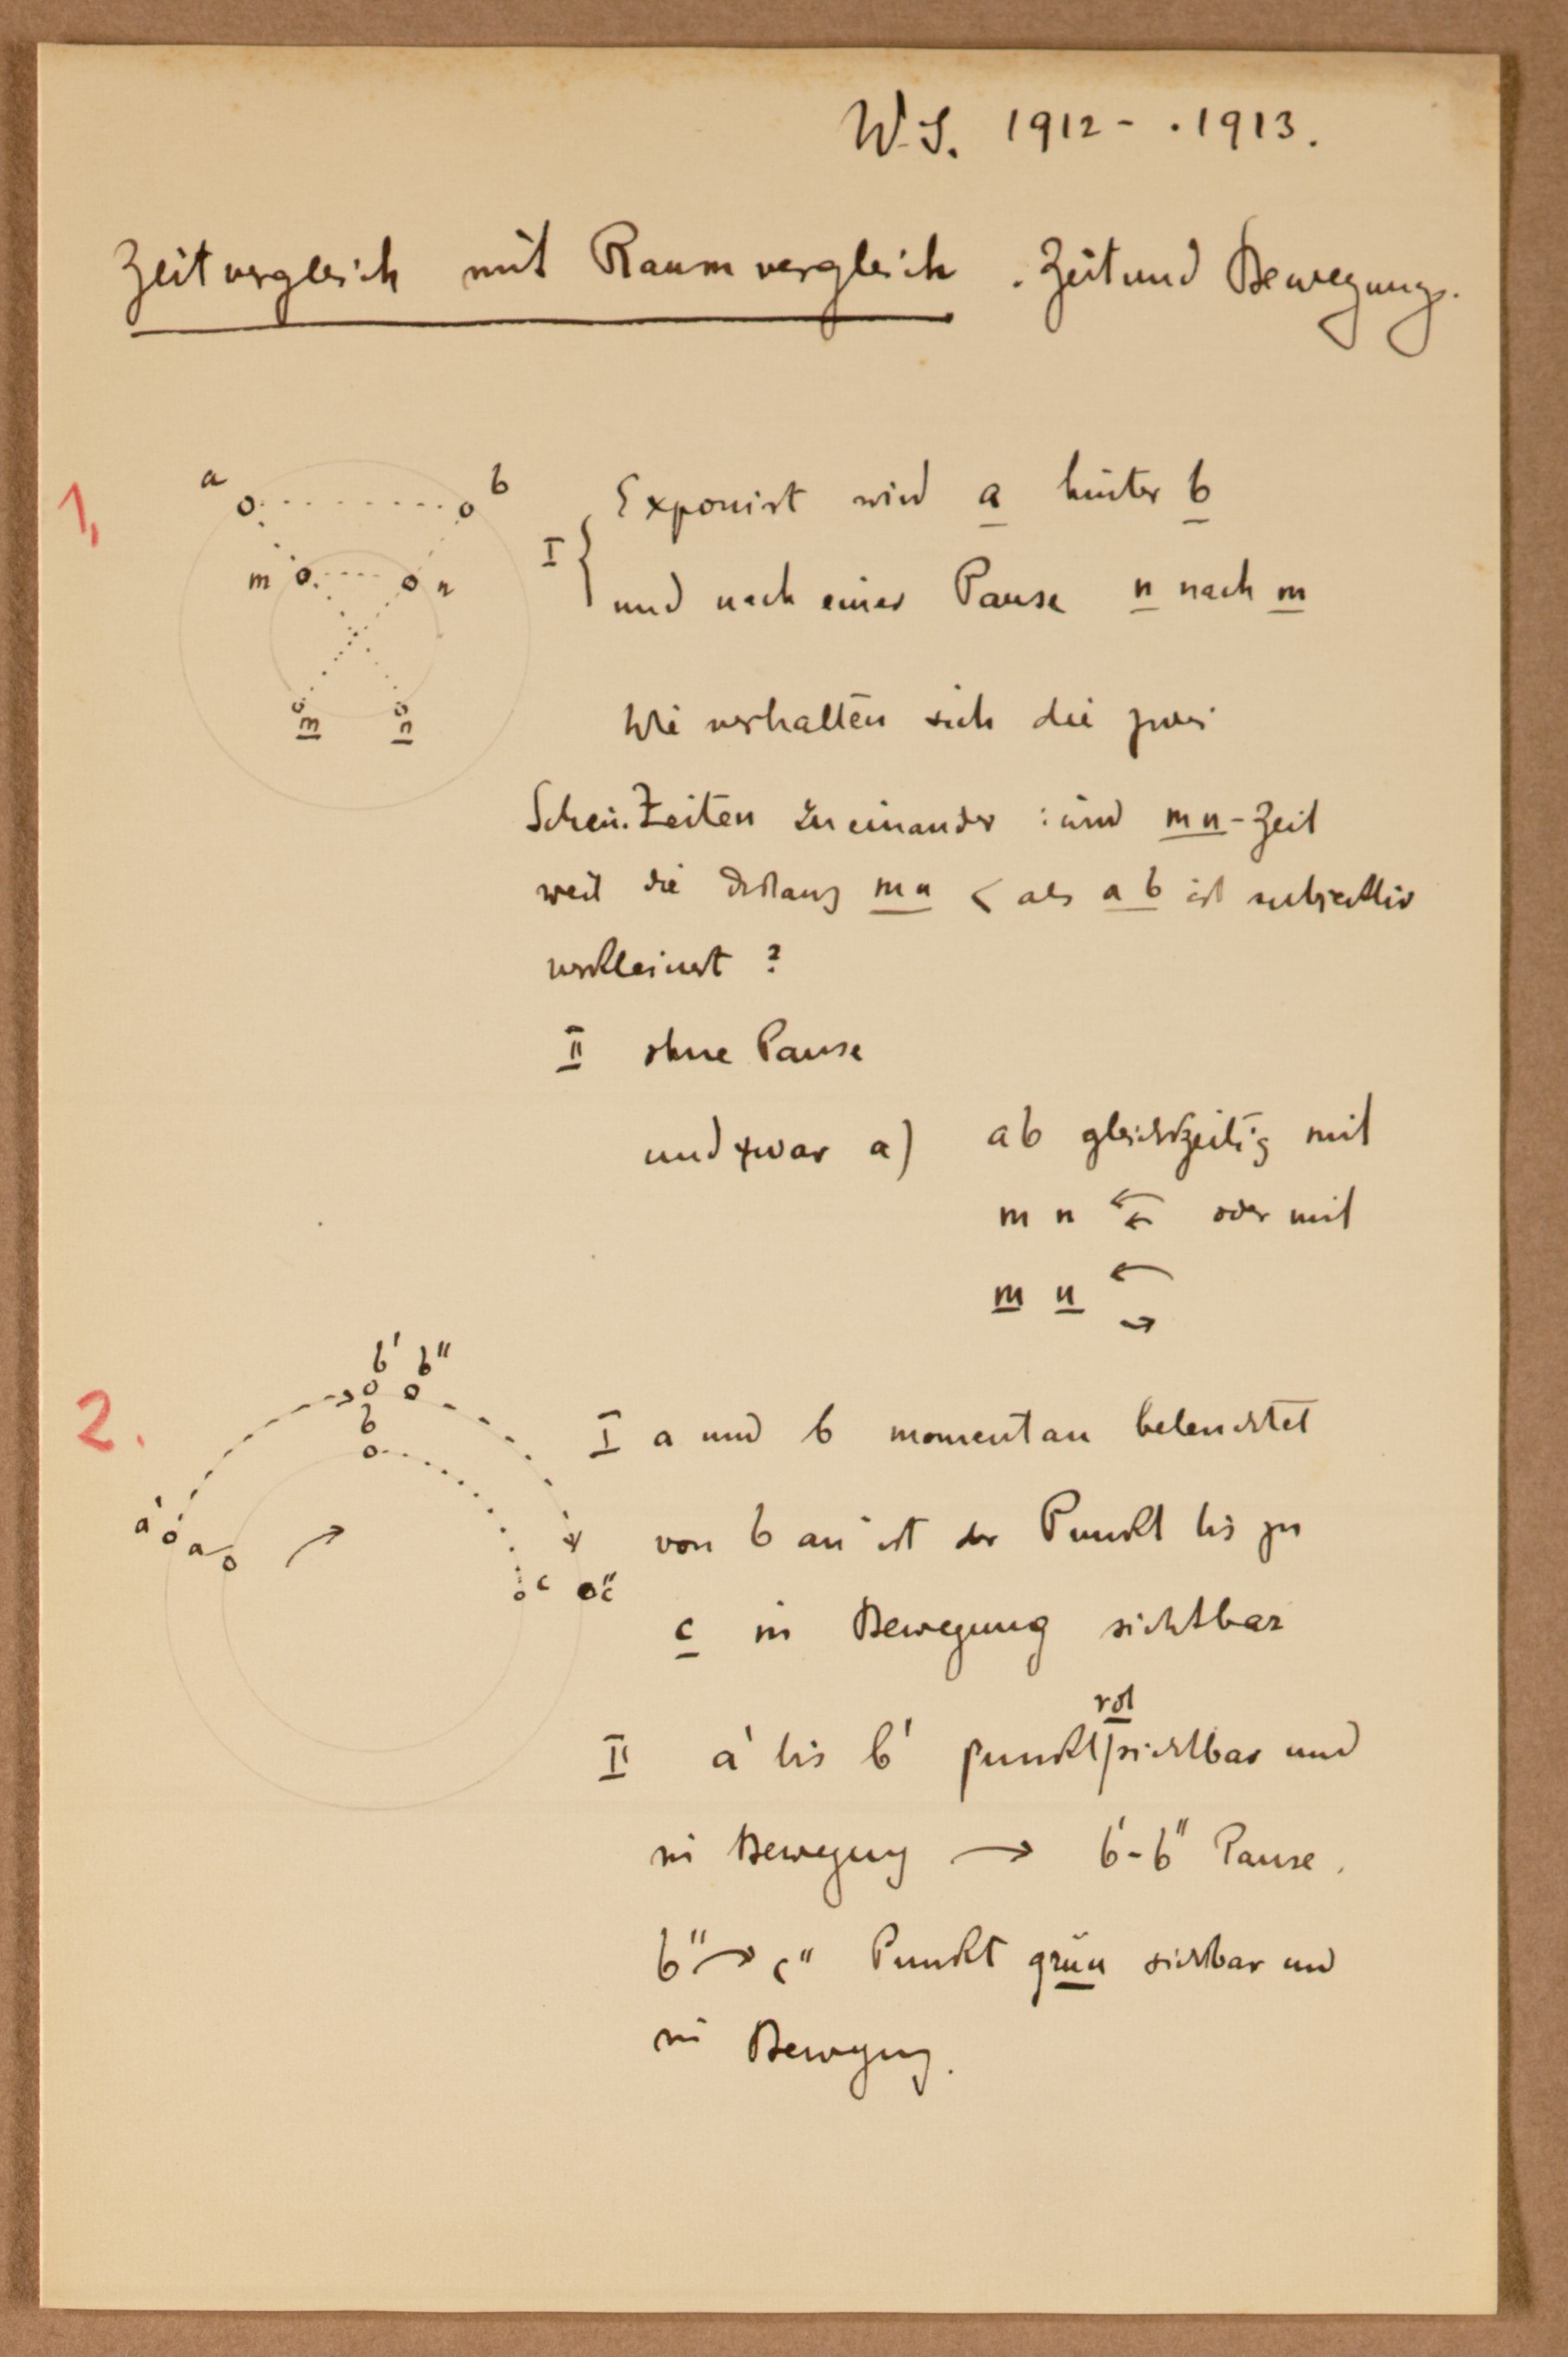 W.S. 1912 - . 1913.
Zeitvergleich mit Raumvergleich . Zeit und Bewegung.
1,
a b
m n
m n
I { Exponirt wird a hinter b
und nach einer Pause n nach m
Wie verhalten sich die zwei
Schein.Zeiten zu einander : wird mn-Zeit
weil die Distanz mn < als ab ist subjektiv
verkleinert ?
II ohne Pause
und zwar a) ab gleichzeitig mit
m n ← ← oder mit
m n ← →
2.
b' b"
b
a' a
c c"
I a und b momentan beleuchtet
von b an ist der Punkt bis zu
c in Bewegung sichtbar
rot
II a' bis b' punkt/sichtbar und
in Bewegung → b'-b" Pause.
b" → c" Punkt grün sichtbar und
in Bewegung.